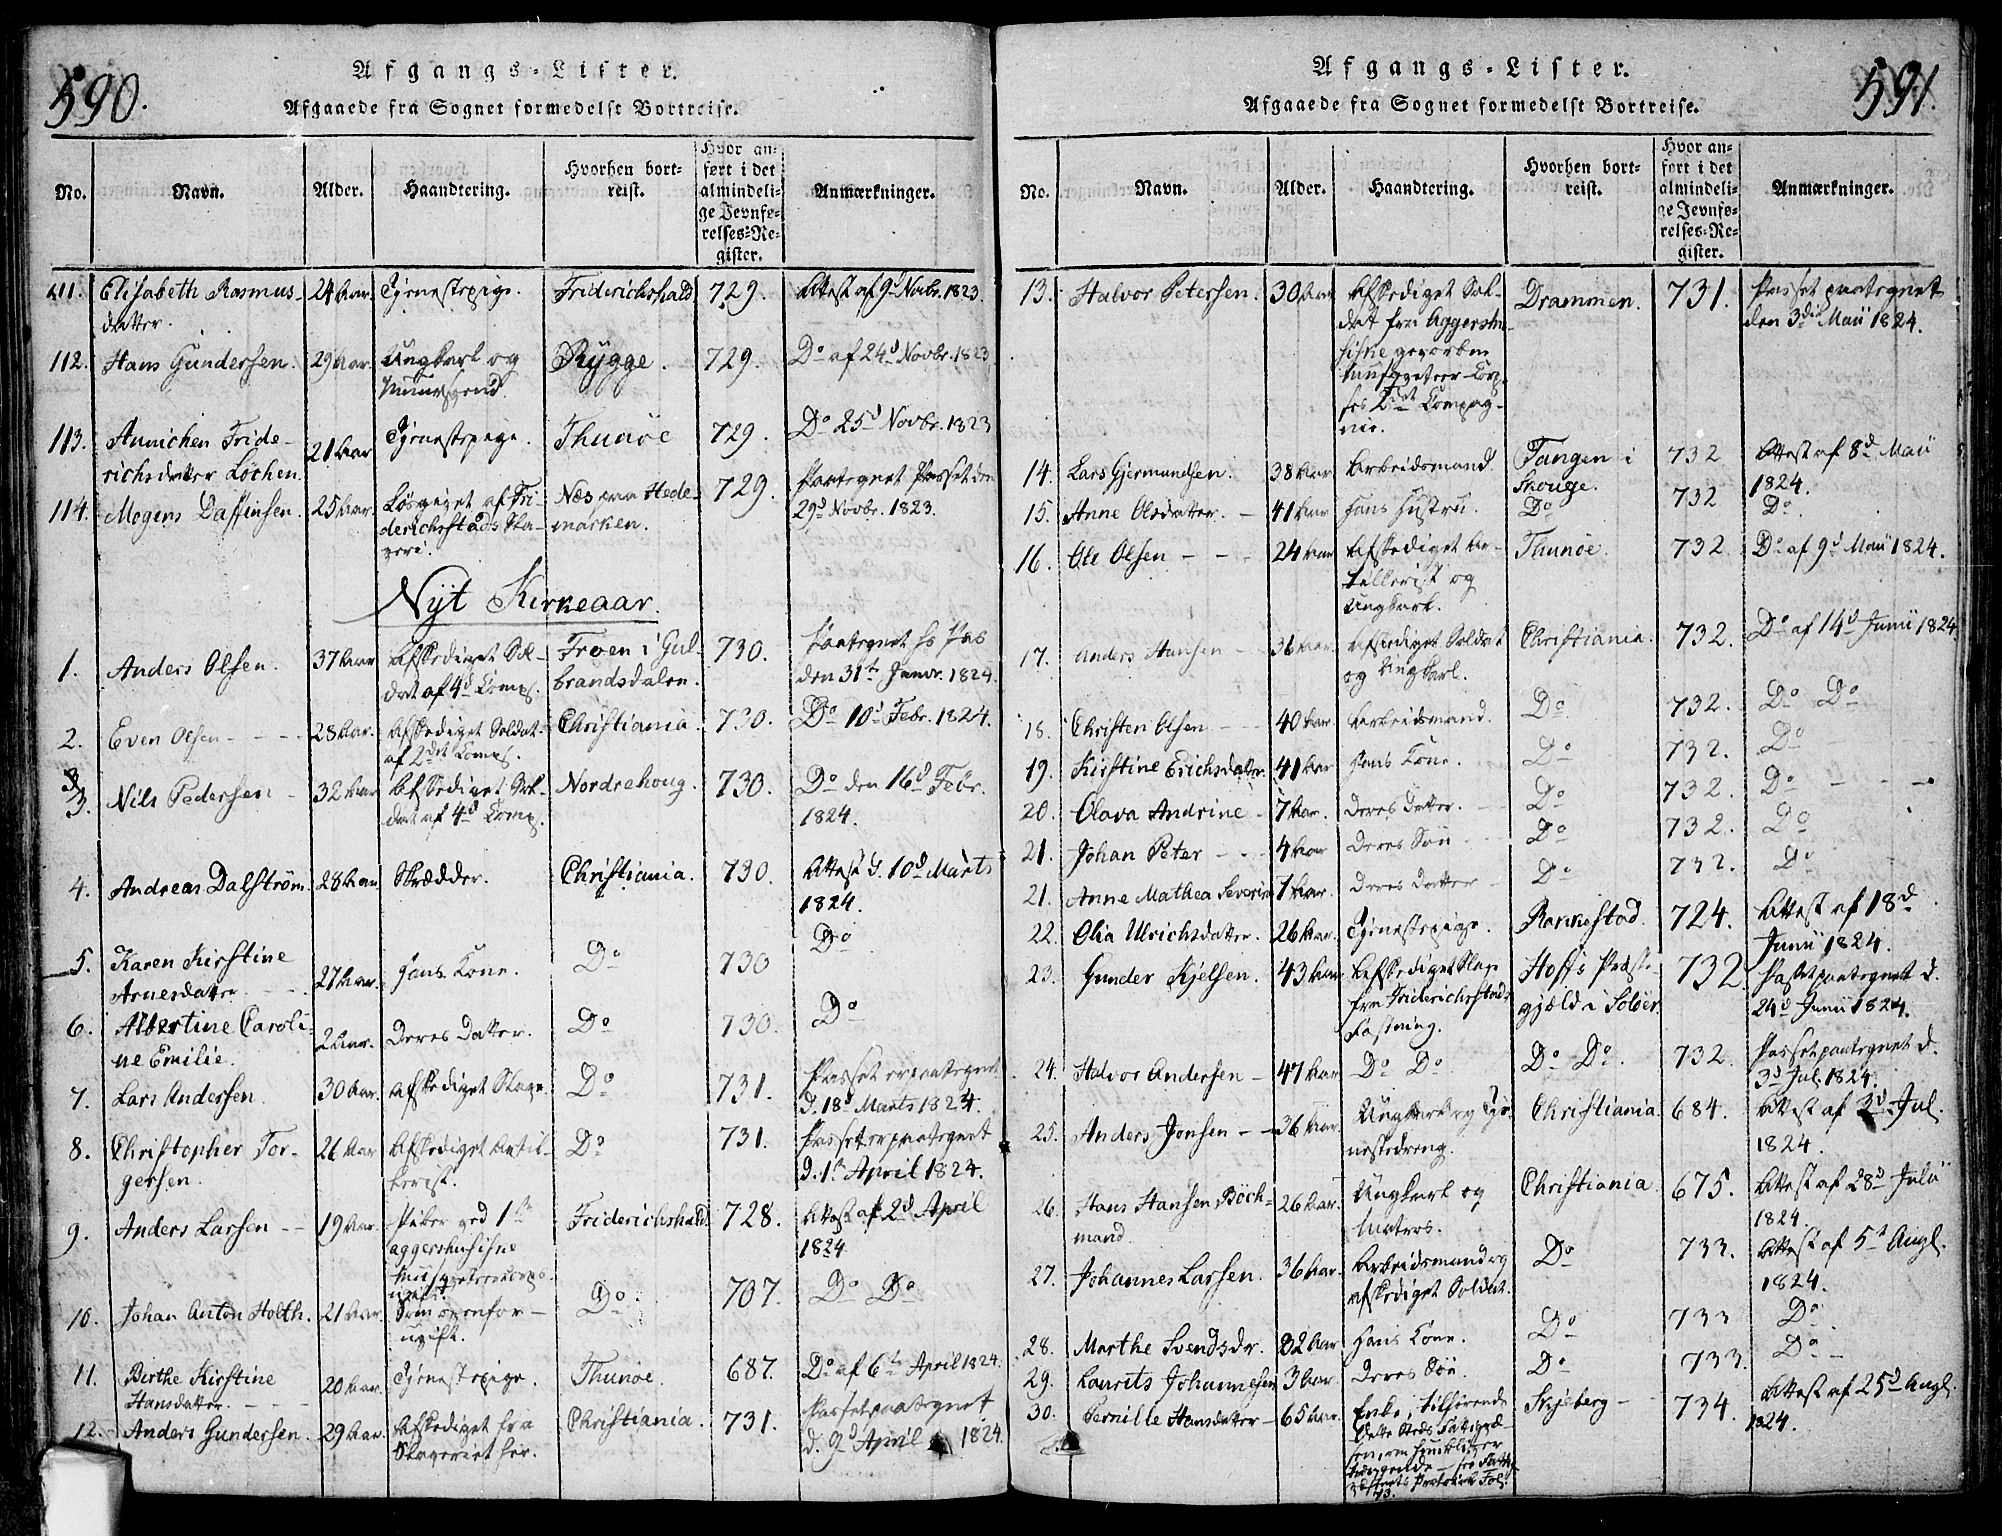 590.
Afgangs-Lister.
Afgaaede fra Sognet formedelst Bortreise.
No. Navn. Alder. Haandtering. Hvorhen bortreist. Hvor anført i det almindelige Jevnførelses-Register. Anmærkninger.
111. Elisabeth Rasmusdatter. 24 Aar. Tjenestepige. Friderichshald 729. Attest af 9d Novbr. 1823.
112. Hans Gundersen. 29 Aar. Ungkarl og Muursvend. Rygge. 729. Do af 24d Novbr. 1823
113. Annichen Friderichsdatter Lochen 21 Aar Tjenestepige. Thunøe 729. Do 25d Novbr. 1823
114. Mogens Daffinsen. 25 Aar. Løsgivet af Friderichstads Slaveri. Næs paa Hedemarken. 729. Paategnet Passet den 29d Novbr. 1823.
Nyt Kirkeaar.
1. Anders Olsen. 37 Aar Afskediget Soldat af 4d Comp. Froen i Gulbrandsdalen. 730. Paategnet hs Pas den 31te Janvr. 1824.
2. Even Olsen 28 Aar. Afskediget Soldat af 2det Comp. Christiania. 730. Do 10d Febr. 1824.
3. Nils Pedersen 32 Aar Afskediget Soldat af 4d Comp. Nordrehoug. 730. Do den 16d Febr. 1824.
4. Andreas Dalstrøm. 28 Aar Skrædder. Christiania. 730. Attest d. 10d Marts 1824.
5. Karen Kirstine Arnesdatter 27 Aar. Hans Kone. Do 730 Do
6. Albertine Caroline Emilie. 2 Aar. Deres Datter. Do 730. Do
7. Lars Andersen. 30 Aar. Afskediget Slave. Do 731. Passet er paategnet d. 18d Marts 1824.
8. Christopher Torgersen. 26 Aar Afskediget Artillerist. Do 731. Passet er paategnet d. 1te April 1824.
9. Anders Larsen 19 Aar. Piber ved 1ste aggershusiske Friderichshald 728. Attest af 2d April 1824
10. Johan Anton Holth. 21 Aar. Som ovenfor Do 707. Do Do
11. Birthe Kirstine Hansdatter. 20 Aar. Tjenestepige. Thunøe. 687. Do af 6te April 1824.
12. Anders Gundersen. 29 Aar. Afskediget fra Slaveriet her. Christiania. 731. Passet paategnet d. 9d April 1824.
591.
Afgangs-Lister.
Afgaaede fra Sognet formedelst Bortreise.
No. Navn. Alder. Haandtering. Hvorhen bortreist. Hvor anført i det almindelige Jevnførelses-Register. Anmærkninger.
13. Halvor Petersen. 30 Aar Afskediget Soldat fra Aggershusiske gevorbne Musqveteer-Corpses 2det Compagnie. Drammen. 731. Passet paategnet den 3die Maii 1824.
14. Lars Gjermundsen. 38 Aar Arbeidsmand. Tangen i Skouge. 732 Attest af 8d Maii 1824.
15. Anne Olsdatter. 41 Aar Hans Hustru. Do 732 Do.
16. Ole Olsen 24 Aar Afskediget Artillerist og Ungkarl. Thunøe. 732 Do af 9d Maii 1824.
17. Anders Hansen 36 Aar. Afskediget Soldat og Ungkarl. Christiania. 732. Do af 14d Junii 1824
18. Christen Olsen 40 Aar. Arbeidsmand. Do 732. Do Do
19. Kirstine Erichsdatter 41 Aar Hans Kone. Do 732. Do
20. Olava Andrine 7 Aar. Deres Datter. Do 732. Do
21. Johan Peter 4 Aar Deres Søn Do 732. Do
21. Anne Mathea Severin 1 Aar. Deres Datter Do 732. Do
22. Olia Ulrichsdatter. 26 Aar. Tjenestepige. Rakkestad. 724. Attest af 18d Junii 1824.
23. Gunder Kjelsen. 43 Aar Afskediget Slave fra Friderichstads Fæstning. Hoffs Præstegjæld i Soløer 732 Passet paategnet d. 24d Junii 1824.
24. Halvor Andersen 47 Aar Do Do Do Do. 732 Passet paategnet d. 3d Jul. 1824.
25. Anders Jonsen 36 Aar. Ungkarl og Tjenestedreng. Christiania. 684. Attest af 3d Jul. 1824.
26. Hans Hansen Bøchmand. 26 Aar. Ungkarl og Matros. Christiania 675. Attest af 28d Julii 1824.
27. Johannes Larsen. 36 Aar. Arbeidsmand og afskediget Soldat. Do 733. Attest af 5t Augl. 1824.
28. Marthe Svendsdr. 32 Aar Hans Kone. Do 733 Do.
29. Laurits Johannesen 3 Aar Deres Søn. Do 733. Do
30. Pernille Hansdatter 65 Aar. Enke, tilhørende dette Steds Fattigvæsen Skjeberg 734. Attest af 25d Augl. 1824.